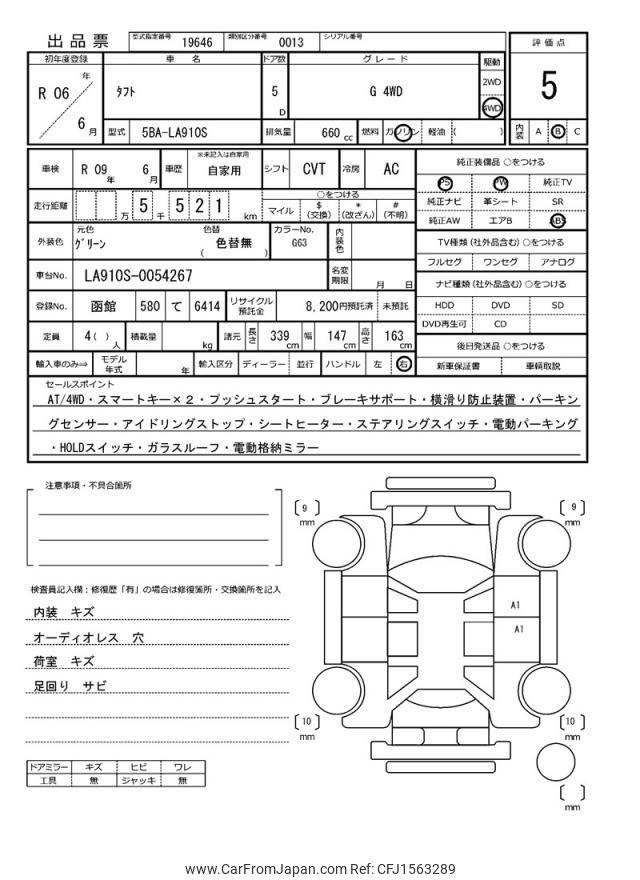 出品票 型式指定番号 19646 類別区分番号 0013 シリアル番号
評価点
5
内装 A B C
初年度登録 車名 ドア数 グレード 駆動
R 06 年 6 月 タフト 5 D G 4WD 2WD 4WD
型式 5BA-LA910S 排気量 660 cc 燃料 ガソリン 軽油 ( )
車検 R 09 年 6 月 車歴 ※未記入は自家用 自家用 シフト CVT 冷房 AC
走行距離 万 5 千 5 2 1 km
○をつける
マイル $ (交換) * (改ざん) # (不明)
外装色 元色 グリーン 色替 ( 色替無 ) カラーNo. G63 内装色
車台No. LA910S-0054267 名変期限 月 日
登録No. 函館 580 て 6414 リサイクル預託金 8,200円預託済 未預託
定員 4( )人 積載量 kg 諸元 長さ 339 cm 幅 147 cm 高さ 163 cm
輸入車のみ⇒ モデル年式 年 輸入区分 ディーラー 並行 ハンドル 左 右
純正装備品 ○をつける
PS PW 純正TV
純正ナビ 革シート SR
純正AW エアB ABS
TV種類 (社外品含む) ○をつける
フルセグ ワンセグ アナログ
ナビ種類 (社外品含む) ○をつける
HDD DVD SD
DVD再生可 CD
後日発送品 ○をつける
新車保証書 車輌取説
セールスポイント
AT/4WD・スマートキー×2・プッシュスタート・ブレーキサポート・横滑り防止装置・パーキン
グセンサー・アイドリングストップ・シートヒーター・ステアリングスイッチ・電動パーキング
・HOLDスイッチ・ガラスルーフ・電動格納ミラー
注意事項・不具合箇所
検査員記入欄：修復歴「有」の場合は修復箇所・交換箇所を記入
内装 キズ
オーディオレス 穴
荷室 キズ
足回り サビ
ドアミラー キズ ヒビ ワレ
工具 無 ジャッキ 無
[ 9 ] mm
[ 9 ] mm
A1
A1
[ 10 ] mm
[ 10 ] mm
[ ] mm
www.CarFromJapan.com Ref: CFJ1563289